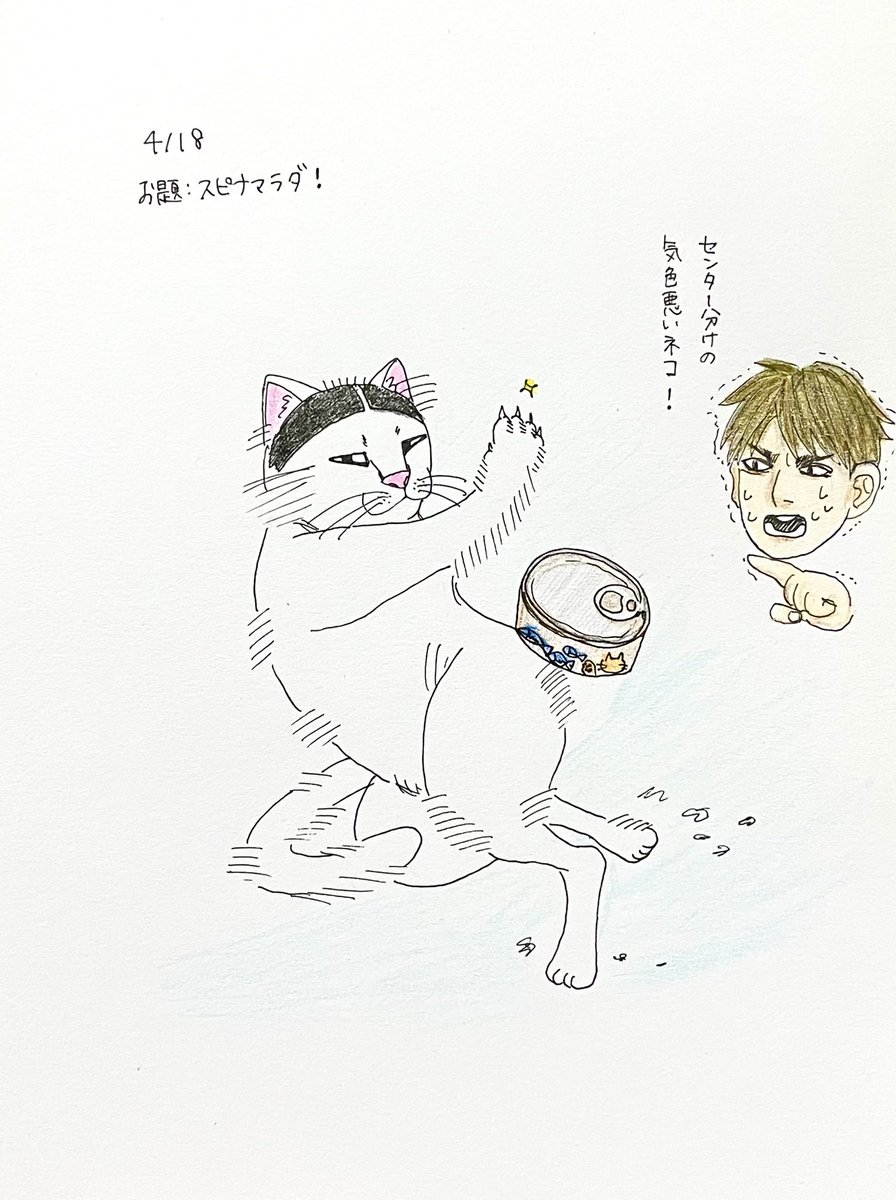 4/18
お題:スピナマラダ!
センター分けの
気色悪いネコ!